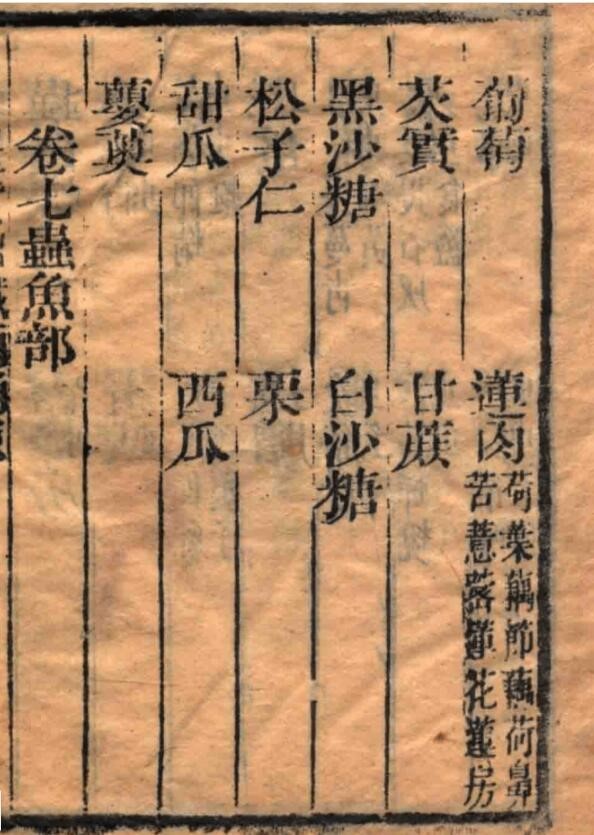 葡萄 蓮肉 荷葉藕節藕荷鼻
苦薏蕋蓮花蓮房
芡實 甘蔗
黑沙糖 白沙糖
松子仁 栗
甜瓜 西瓜
蘡薁
卷七蟲魚部